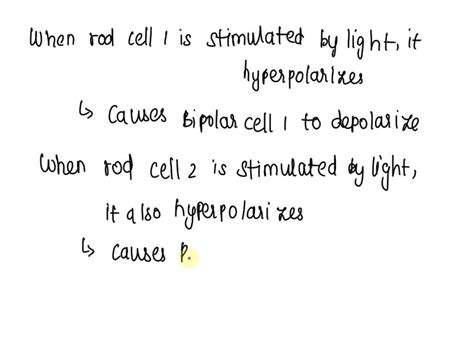 When rod cell 1 is stimulated by light, it
hyperpolarizes
↳ causes Bipolar cell 1 to depolarize
When rod cell 2 is stimulated by light,
it also hyperpolarizes
↳ causes B